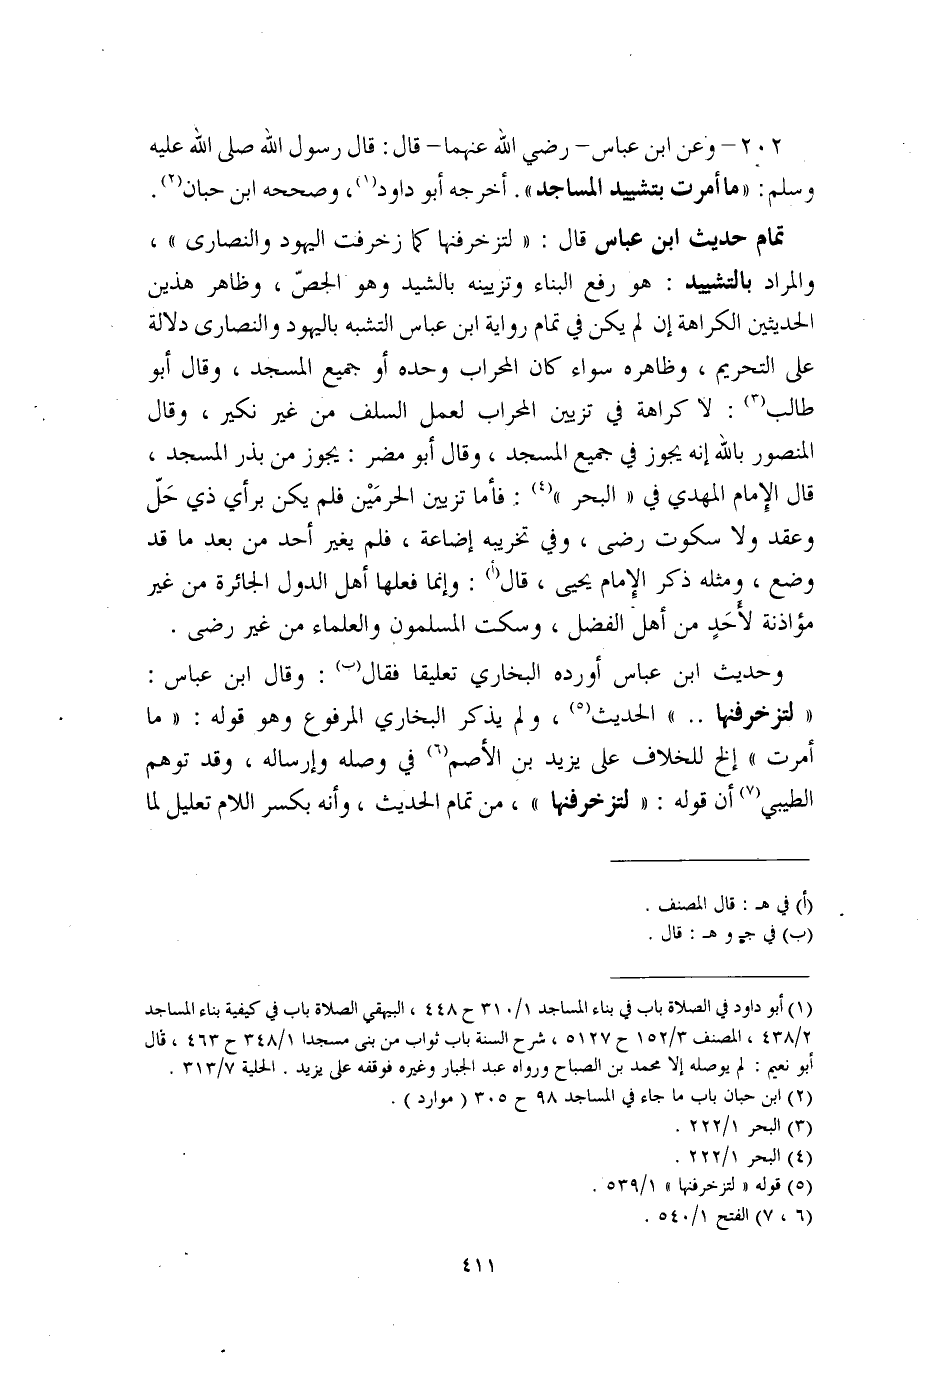 ٢٠٢ – وعن ابن عباس – رضي الله عنهما – قال : قال رسول الله صلى الله عليه
وسلم : « ما أمرت بتشييد المساجد » . أخرجه أبو داود(١) ، وصححه ابن حبان(٢) .
تمام حديث ابن عباس قال : « لتزخرفنها كما زخرفت اليهود والنصارى » ،
والمراد بالتشييد : هو رفع البناء وتزيينه بالشيد وهو الجصّ ، وظاهر هذين
الحديثين الكراهة إن لم يكن في تمام رواية ابن عباس التشبه باليهود والنصارى دلالة
على التحريم ، وظاهره سواء كان المحراب وحده أو جميع المسجد ، وقال أبو
طالب(٣) : لا كراهة في تزيين المحراب لعمل السلف من غير نكير ، وقال
المنصور بالله إنه يجوز في جميع المسجد ، وقال أبو مضر : يجوز من بذر المسجد ،
قال الإمام المهدي في « البحر »(٤) : فأما تزيين الحرمَيْن فلم يكن برأي ذي حَلّ
وعقد ولا سكوت رضى ، وفي تخريبه إضاعة ، فلم يغير أحد من بعد ما قد
وضع ، ومثله ذكر الإمام يحيى ، قال(أ) : وإنما فعلها أهل الدول الجائرة من غير
مؤاذنة لأَحَدٍ من أهل الفضل ، وسكت المسلمون والعلماء من غير رضى .
وحديث ابن عباس أورده البخاري تعليقا فقال(ب) : وقال ابن عباس :
« لتزخرفنها .. » الحديث(٥) ، ولم يذكر البخاري المرفوع وهو قوله : « ما
أمرت » إلخ للخلاف على يزيد بن الأصم(٦) في وصله وإرساله ، وقد توهم
الطيبي(٧) أن قوله : « لتزخرفنها » ، من تمام الحديث ، وأنه بكسر اللام تعليل لما
(أ) في هـ : قال المصنف .
(ب) في جـ و هـ : قال .
(١) أبو داود في الصلاة باب في بناء المساجد ٣١٠/١ ح ٤٤٨ ، البيهقي الصلاة باب في كيفية بناء المساجد
٤٣٨/٢ ، المصنف ١٥٢/٣ ح ٥١٢٧ ، شرح السنة باب ثواب من بنى مسجدا ٣٤٨/١ ح ٤٦٣ ، قال
أبو نعيم : لم يوصله إلا محمد بن الصباح ورواه عبد الجبار وغيره فوقفه على يزيد . الحلية ٣١٣/٧ .
(٢) ابن حبان باب ما جاء في المساجد ٩٨ ح ٣٠٥ ( موارد ) .
(٣) البحر ٢٢٢/١ .
(٤) البحر ٢٢٢/١ .
(٥) قوله « لتزخرفنها » ٥٣٩/١ .
(٦ ، ٧) الفتح ٥٤٠/١ .
٤١١